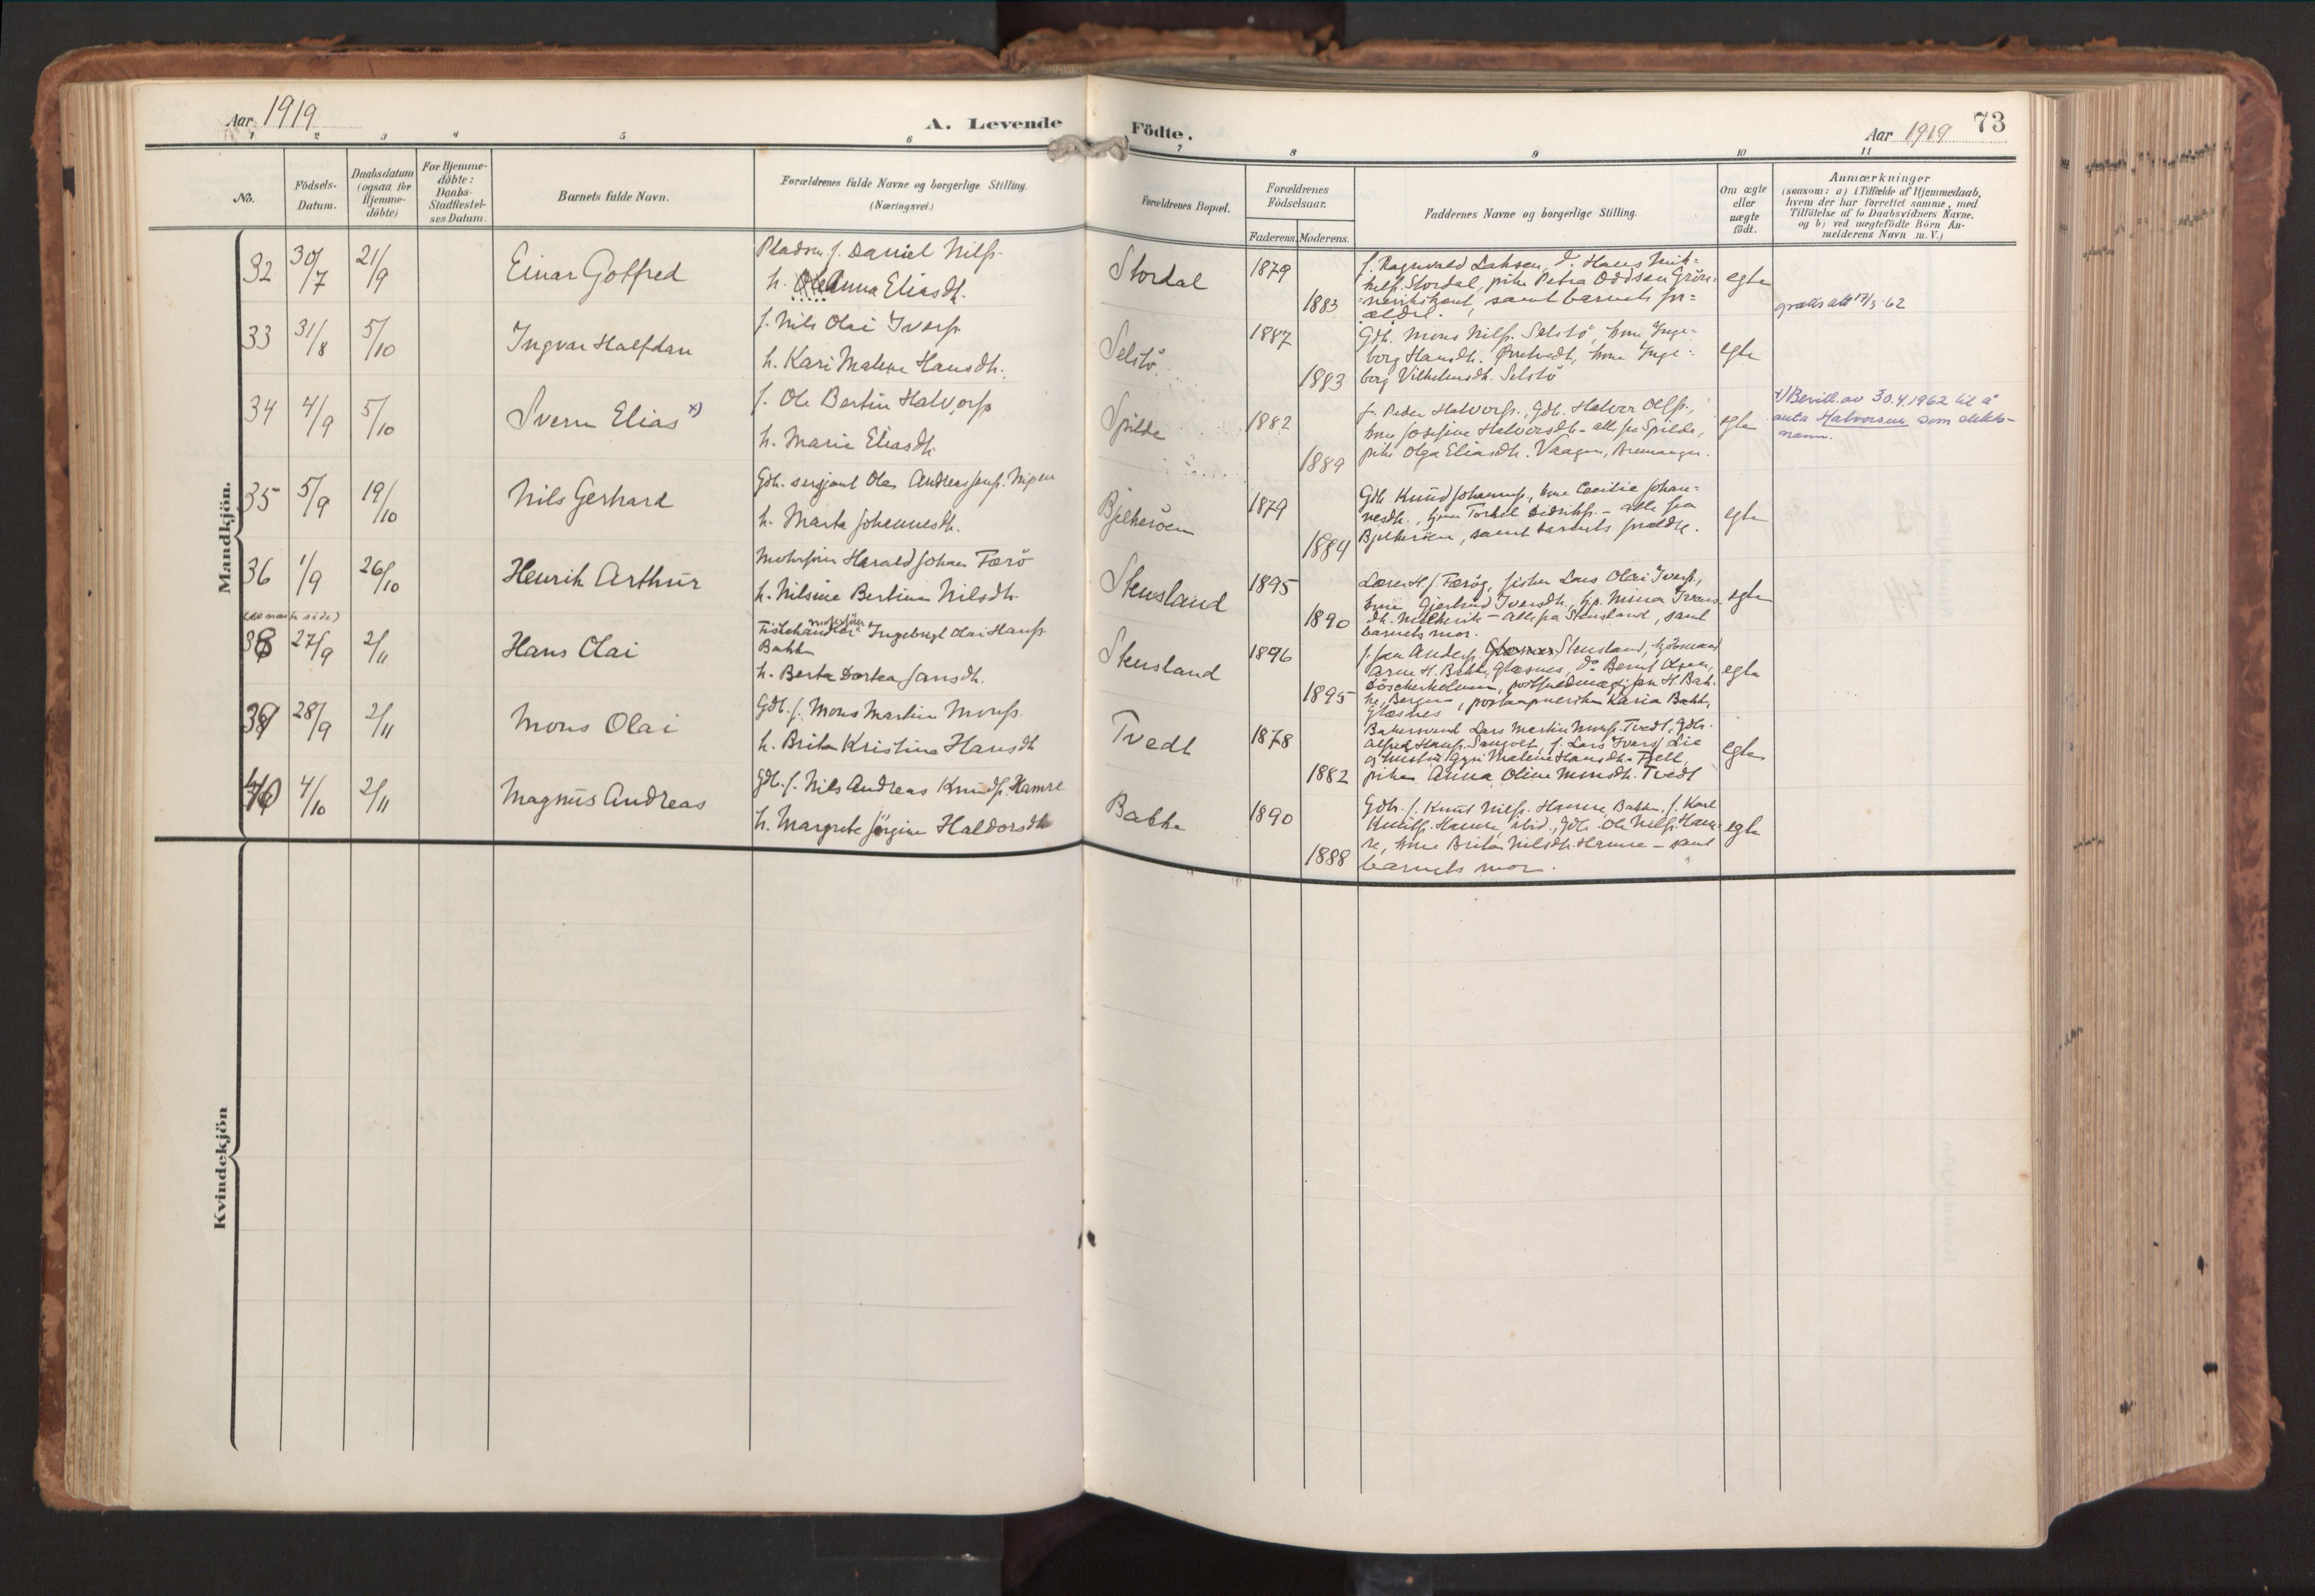 Aar 1919
A. Levende
Födte.
Aar 1919
73
1 2 3 4 5 6 7 8 9 10 11
No.
Födsels-
Datum.
Daabsdatum
(ogsaa for
Hjemme-
döbte)
For Hjemme-
döbte:
Daabs-
Stadfæstel-
ses Datum.
Barnets fulde Navn.
Forældrenes fulde Navne og borgerlige Stilling.
(Næringsvei.)
Forældrenes Bopæl.
Forældrenes
Födselsaar.
Faderens. Moderens.
Faddernes Navne og borgerlige Stilling.
Om ægte
eller
uægte
födt.
Anmærkninger
(saasom: a) i Tilfælde af Hjemmedaab,
hvem der har forrettet samme, med
Tilföielse af to Daabsvidners Navne,
og b) ved uægtefödte Börn An-
melderens Navn m. V.)
Mandkjön.
32 30/7 21/9 Einar Gotfred
Pladsm. f. Daniel Nilss.
h. Anna Eliasdh.
Stordal 1879 1883
f. Ragnvald Laksen,
Stordal, pike Petra Oddsen
samt barnets for-
ældre.
egte
gratis att 17/3 62
33 31/8 5/10 Ingvar Halfdan
f. Nils Olai Iverss.
h. Kari Malene Hansdh.
Selstö 1887 1883
Gdh. Mons Nilss. Selstö, kone Inge-
borg Hansdh. kone Inge-
borg Vilhelmsdh. Selstö
egte
34 4/9 5/10 Sverre Elias x)
f. Ole Bertin Halvorss.
h. Marie Eliasdh.
Spilde 1882 1889
f. Peder Halvorss., Gdh. Halvor Olss.,
kone Josefine Halvorsdh. - alle fra Spilde,
pike Olga Eliasdh. Vaagen, Bremanger.
egte
x) Bevill. av 30.4.1962 til å
anta Halvorsen som slekts-
navn.
35 5/9 19/10 Nils Gerhard
Gdh. sersjant Ole Andreas Jenss. Nipen
h. Marta Johannesdh.
Bjelkeröen 1879 1884
Gdh. Knud Johanness., kone Cecilie Johan-
nesdh., Torkel Didrikss. - alle fra
Bjelkeröen, samt barnets forældre.
egte
36 1/9 26/10 Henrik Arthur
Motorfører Harald Johan Færö
h. Nilsine Bertine Nilsdh.
Stensland 1895 1890
Lærer H. J. Færöy, fisker Lars Olai Iverss.,
kone Gjertrud Iversdh., Nina Ivers-
dh. - alle fra Stensland, samt
barnets mor.
egte
(se næste side)
38 27/9 2/11 Hans Olai
Fiskehandler Ingebrigt Olai Hanss.
Bakke
h. Berta Dortea Jansdh.
Stensland 1896 1895
f. Jan Anderss. Stensland,
Arne H. Bakke, Glesnes, do Bernt Olsen,
Jan H. Bak-
ke, Bergen, Karia Bakke,
Glesnes
egte
39 28/9 2/11 Mons Olai
Gdb. f. Mons Martin Monss.
h. Brita Kristine Hansdh
Tvedt 1878 1882
Lars Martin Monss. Tvedt, Gdb.
Alfred Hanss. f. Lars Iverss. Lie
og hustru Malene Hansdh. Fjell,
pike Anna Oline Monsdh. Tvedt
egte
40 4/10 2/11 Magnus Andreas
Gdb. f. Nils Andreas Knudss. Hamre
h. Margrete Jörgine Haldorsdh
Bakke 1890 1888
Gdb. f. Knut Nilss. Hamre, Bakke, f. Karl
Knutss. Hamre, ibid., Gdb. Ole Nilss. Ham-
re, kone Brita Nilsdh. Hamre - samt
barnets mor.
egte
Kvindekjön